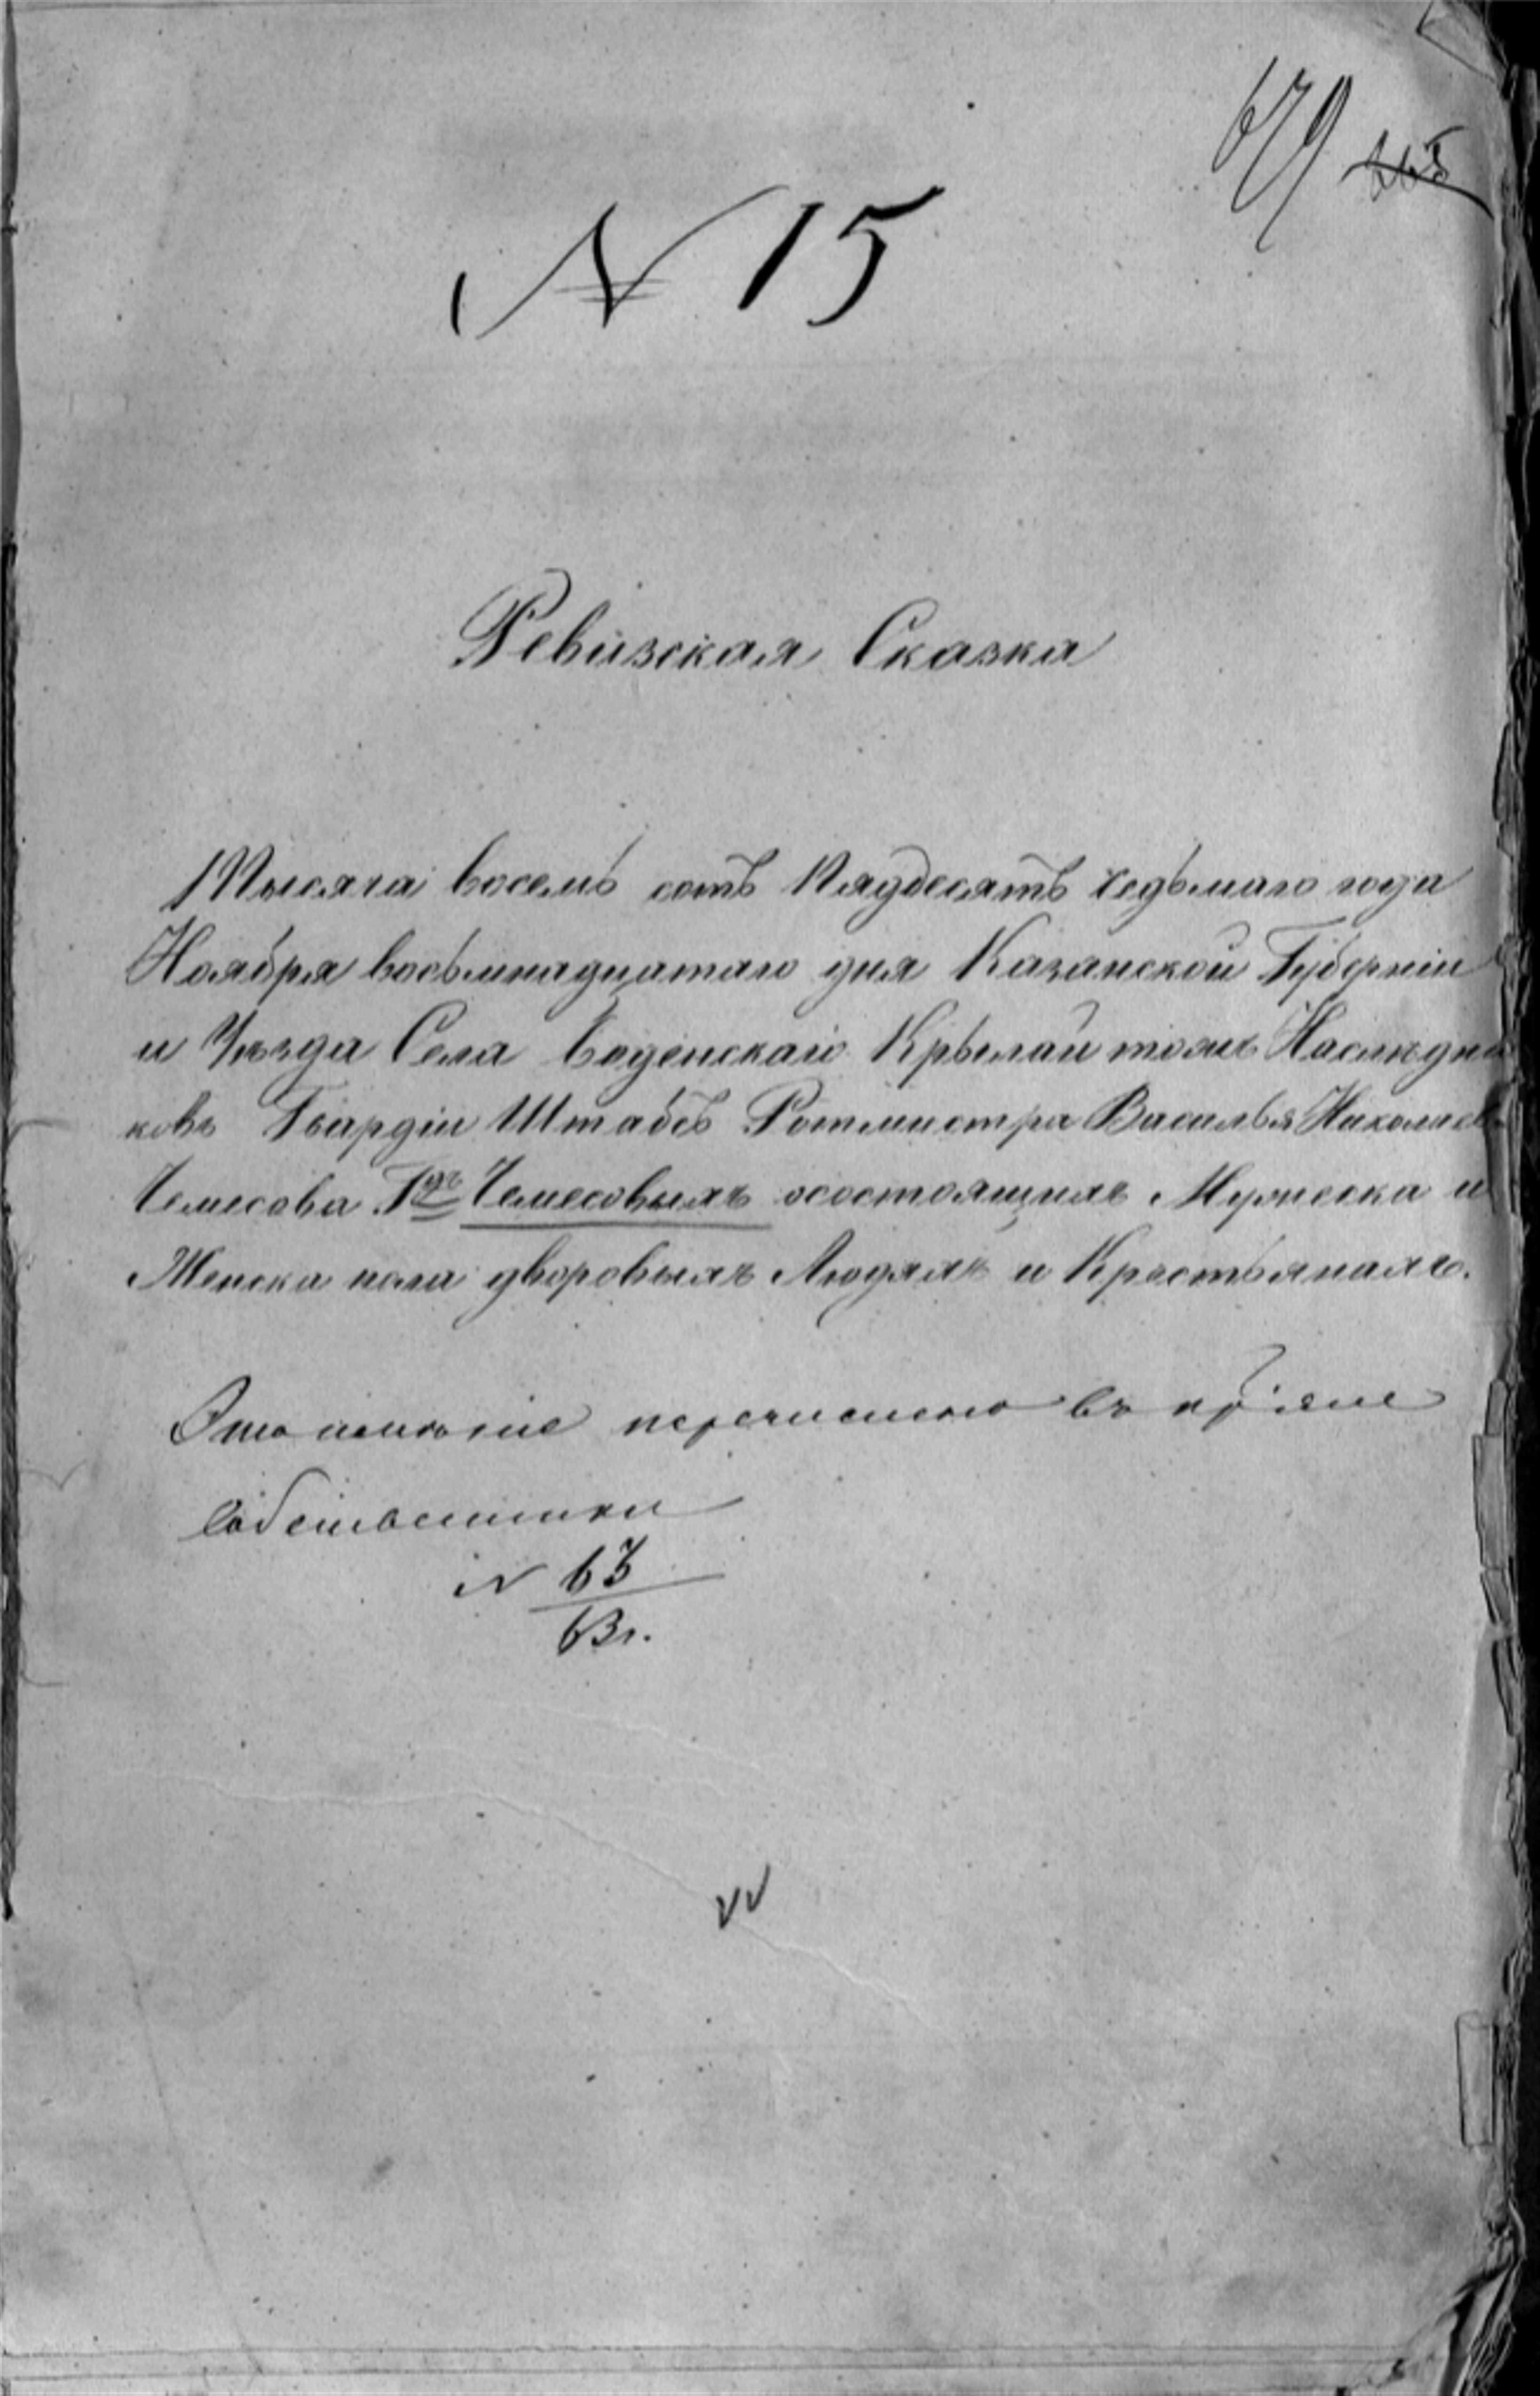 679
№ 15
Ревизская Сказка
Тысяча восемь сотъ Пяддесятъ седьмаго года
Ноября восьмнадцатаго дня Казанской Губерніи
и Уѣзда Села Крылай тожъ Наслѣдни
ковъ Гвардіи Штабсъ Ротмистра Василья Николаев
Чемесова Гдъ Чемесовыхъ осостоящихъ Мужеска и
Женска пола дворовыхъ Людяхъ и Крестьянахъ.
перечислено въ
собственники
№ 63
63 г.